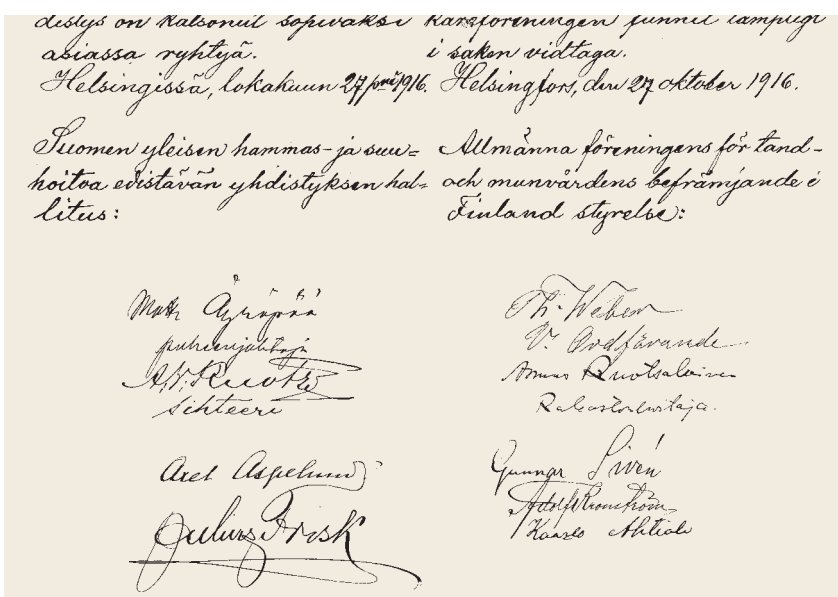 distys on katsonut sopivaksi
asiassa ryhtyä.
Helsingissä, lokakuun 27 p:nä 1916.
Suomen yleisen hammas- ja suu=
hoitoa edistävän yhdistyksen hal=
litus:
Matti Äyräpää
puheenjohtaja
sihteeri
Axel Aspelund
Julius Frisk
kansföreningen funnit lämpligt
i saken vidtaga.
Helsingfors, den 27 oktober 1916.
Allmänna föreningens för tand-
och munvårdens befrämjande i
Finland styrelse:
Th. Weber
V. Ordförande
Ruotsalainen
Rahastonhoitaja.
Gunnar Sivén
Adolf Kronström
Kaarlo Ahtiala